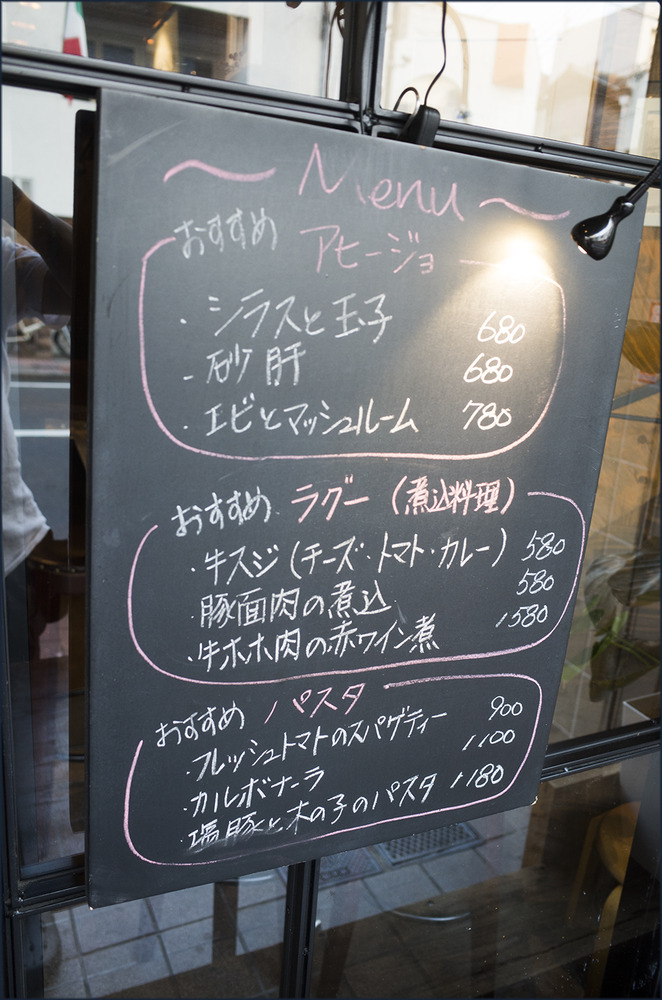 ～ Menu ～
おすすめ アヒージョ
・シラスと玉子 680
- 砂肝 680
・エビとマッシュルーム 780
おすすめ ラグー (煮込料理)
・牛スジ (チーズ・トマト・カレー) 580
・豚面肉の煮込 580
・牛ホホ肉の赤ワイン煮 1580
おすすめ パスタ
・フレッシュトマトのスパゲティー 900
・カルボナーラ 1100
・塩豚と木の子のパスタ 1180